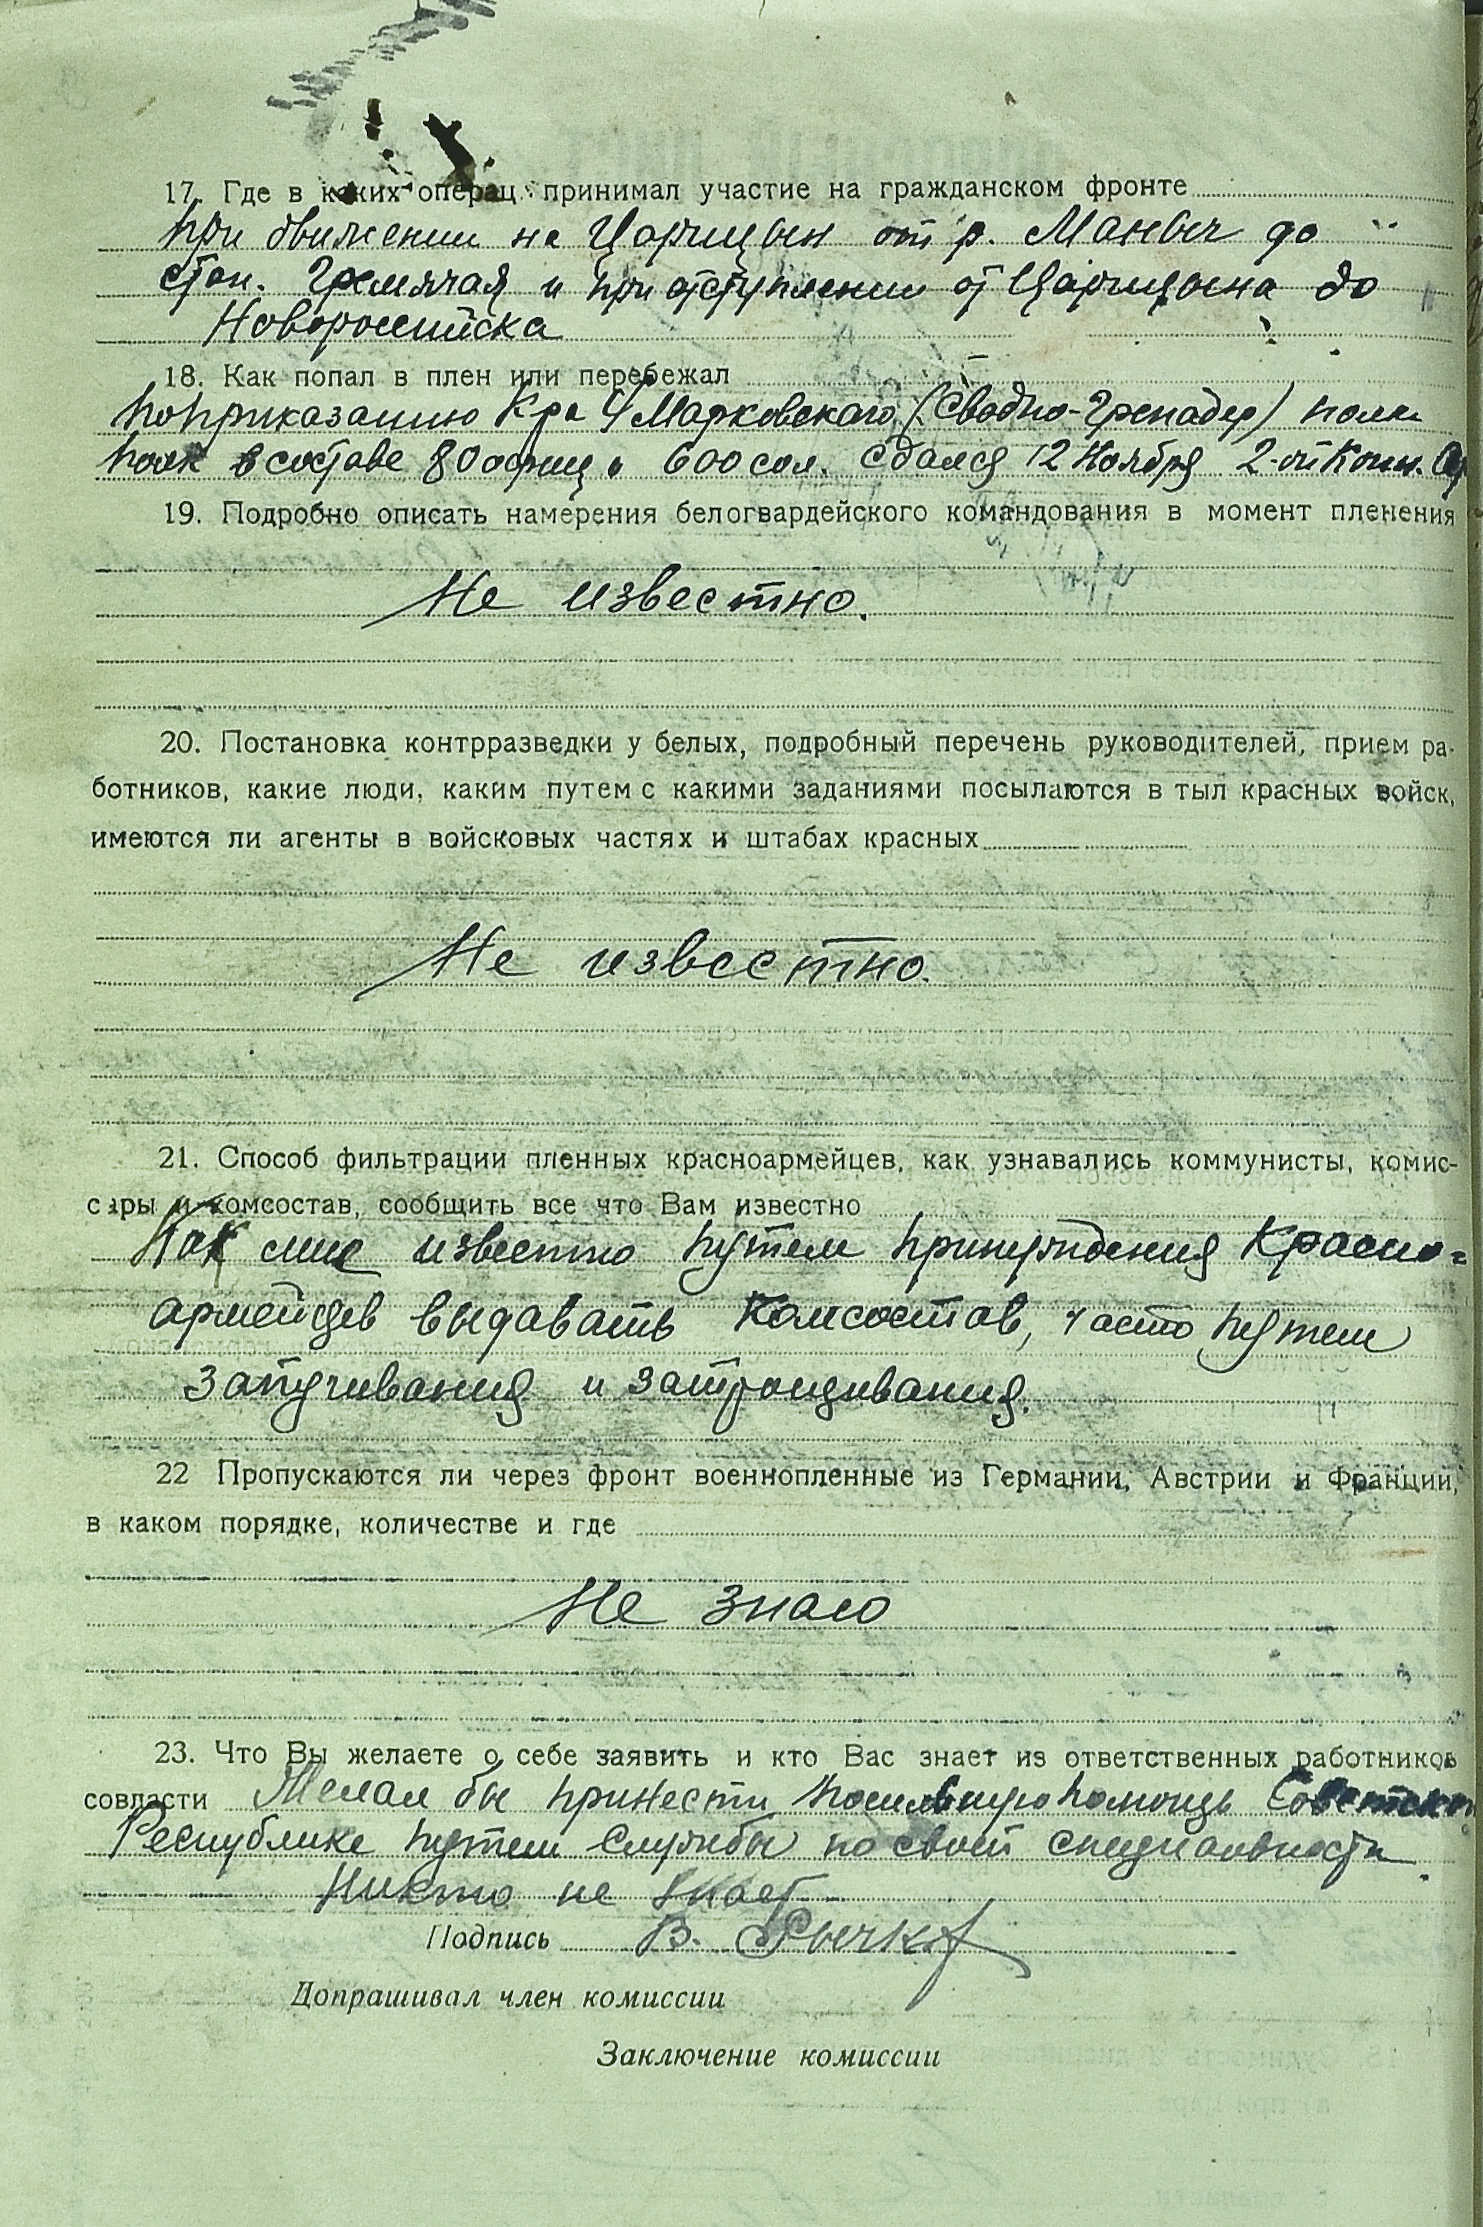 17. Где в каких операц. принимал участие на гражданском фронте
При движении на Царицын от р. Маныч до
стан. Гремячая и при отступлении от Царицына до
Новороссийска
18. Как попал в плен или перебежал
По приказанию К-ра 4 Марковского (Сводно-Гренадер) полка
полк в составе 80 офиц и 600 сол. сдался 12 Ноября 2-ой Конн.
19. Подробно описать намерения белогвардейского командования в момент пленения
Не известно.
20. Постановка контрразведки у белых, подробный перечень руководителей, прием ра-
ботников, какие люди, каким путем с какими заданиями посылаются в тыл красных войск,
имеются ли агенты в войсковых частях и штабах красных
Не известно.
21. Способ фильтрации пленных красноармейцев, как узнавались коммунисты, комис-
сары и комсостав, сообщить все что Вам известно
Как мне известно путем принуждения Красно=
армейцев выдавать комсостав, часто путем
запугивания и застращивания.
22 Пропускаются ли через фронт военнопленные из Германии, Австрии и Франции,
в каком порядке, количестве и где
Не знаю
23. Что Вы желаете о себе заявить и кто Вас знает из ответственных работников
совласти Желал бы принести посильную помощь Советской
Республике путем службы по своей специальности.
Никто не знает
Подпись В. Рычков
Допрашивал член комиссии
Заключение комиссии